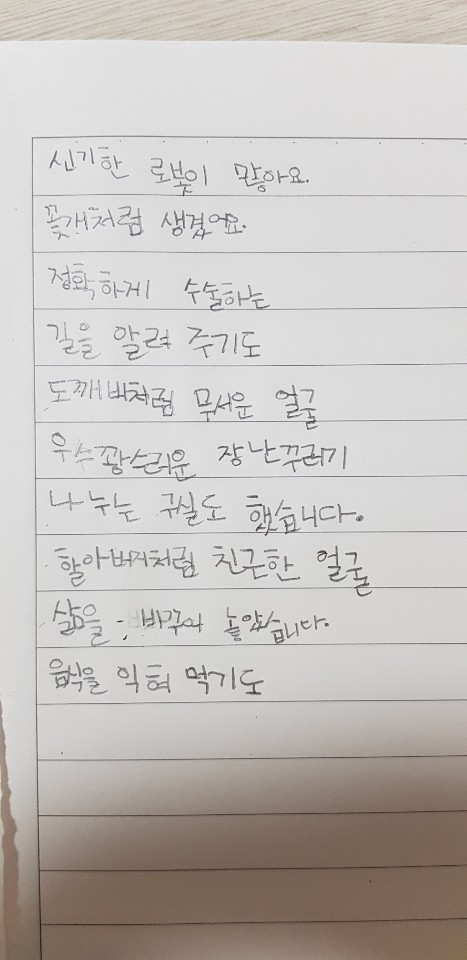 신기한 로봇이 많아요.
꽃게처럼 생겼어요.
정확하게 수술하는
길을 알려 주기도
도깨비처럼 무서운 얼굴
우수꽝스러운 장난꾸러기
나누는 구실도 했습니다.
할아버지처럼 친근한 얼굴
삶을 바꾸어 놓았습니다.
음식을 익혀 먹기도